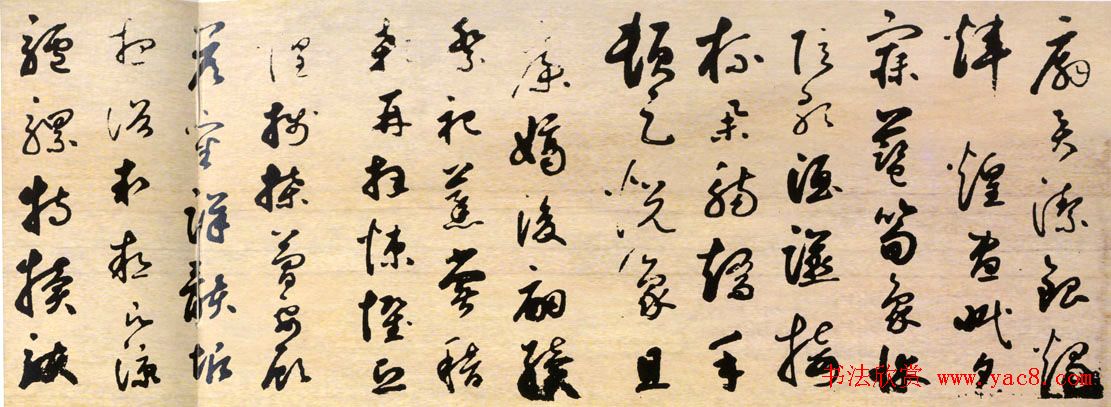 扇員潔銀燭
煒煌晝眠夕
寐藍笋象床
弦歌酒讌接
杯舉觴矯手
頓足悅豫且
康嫡後嗣續
祭祀蒸嘗稽
顙再拜悚懼恐
惶牋牒簡要顧
答審詳骸垢
想浴執熱願涼
驢騾特犢駭
书法欣赏 www.yac8.com